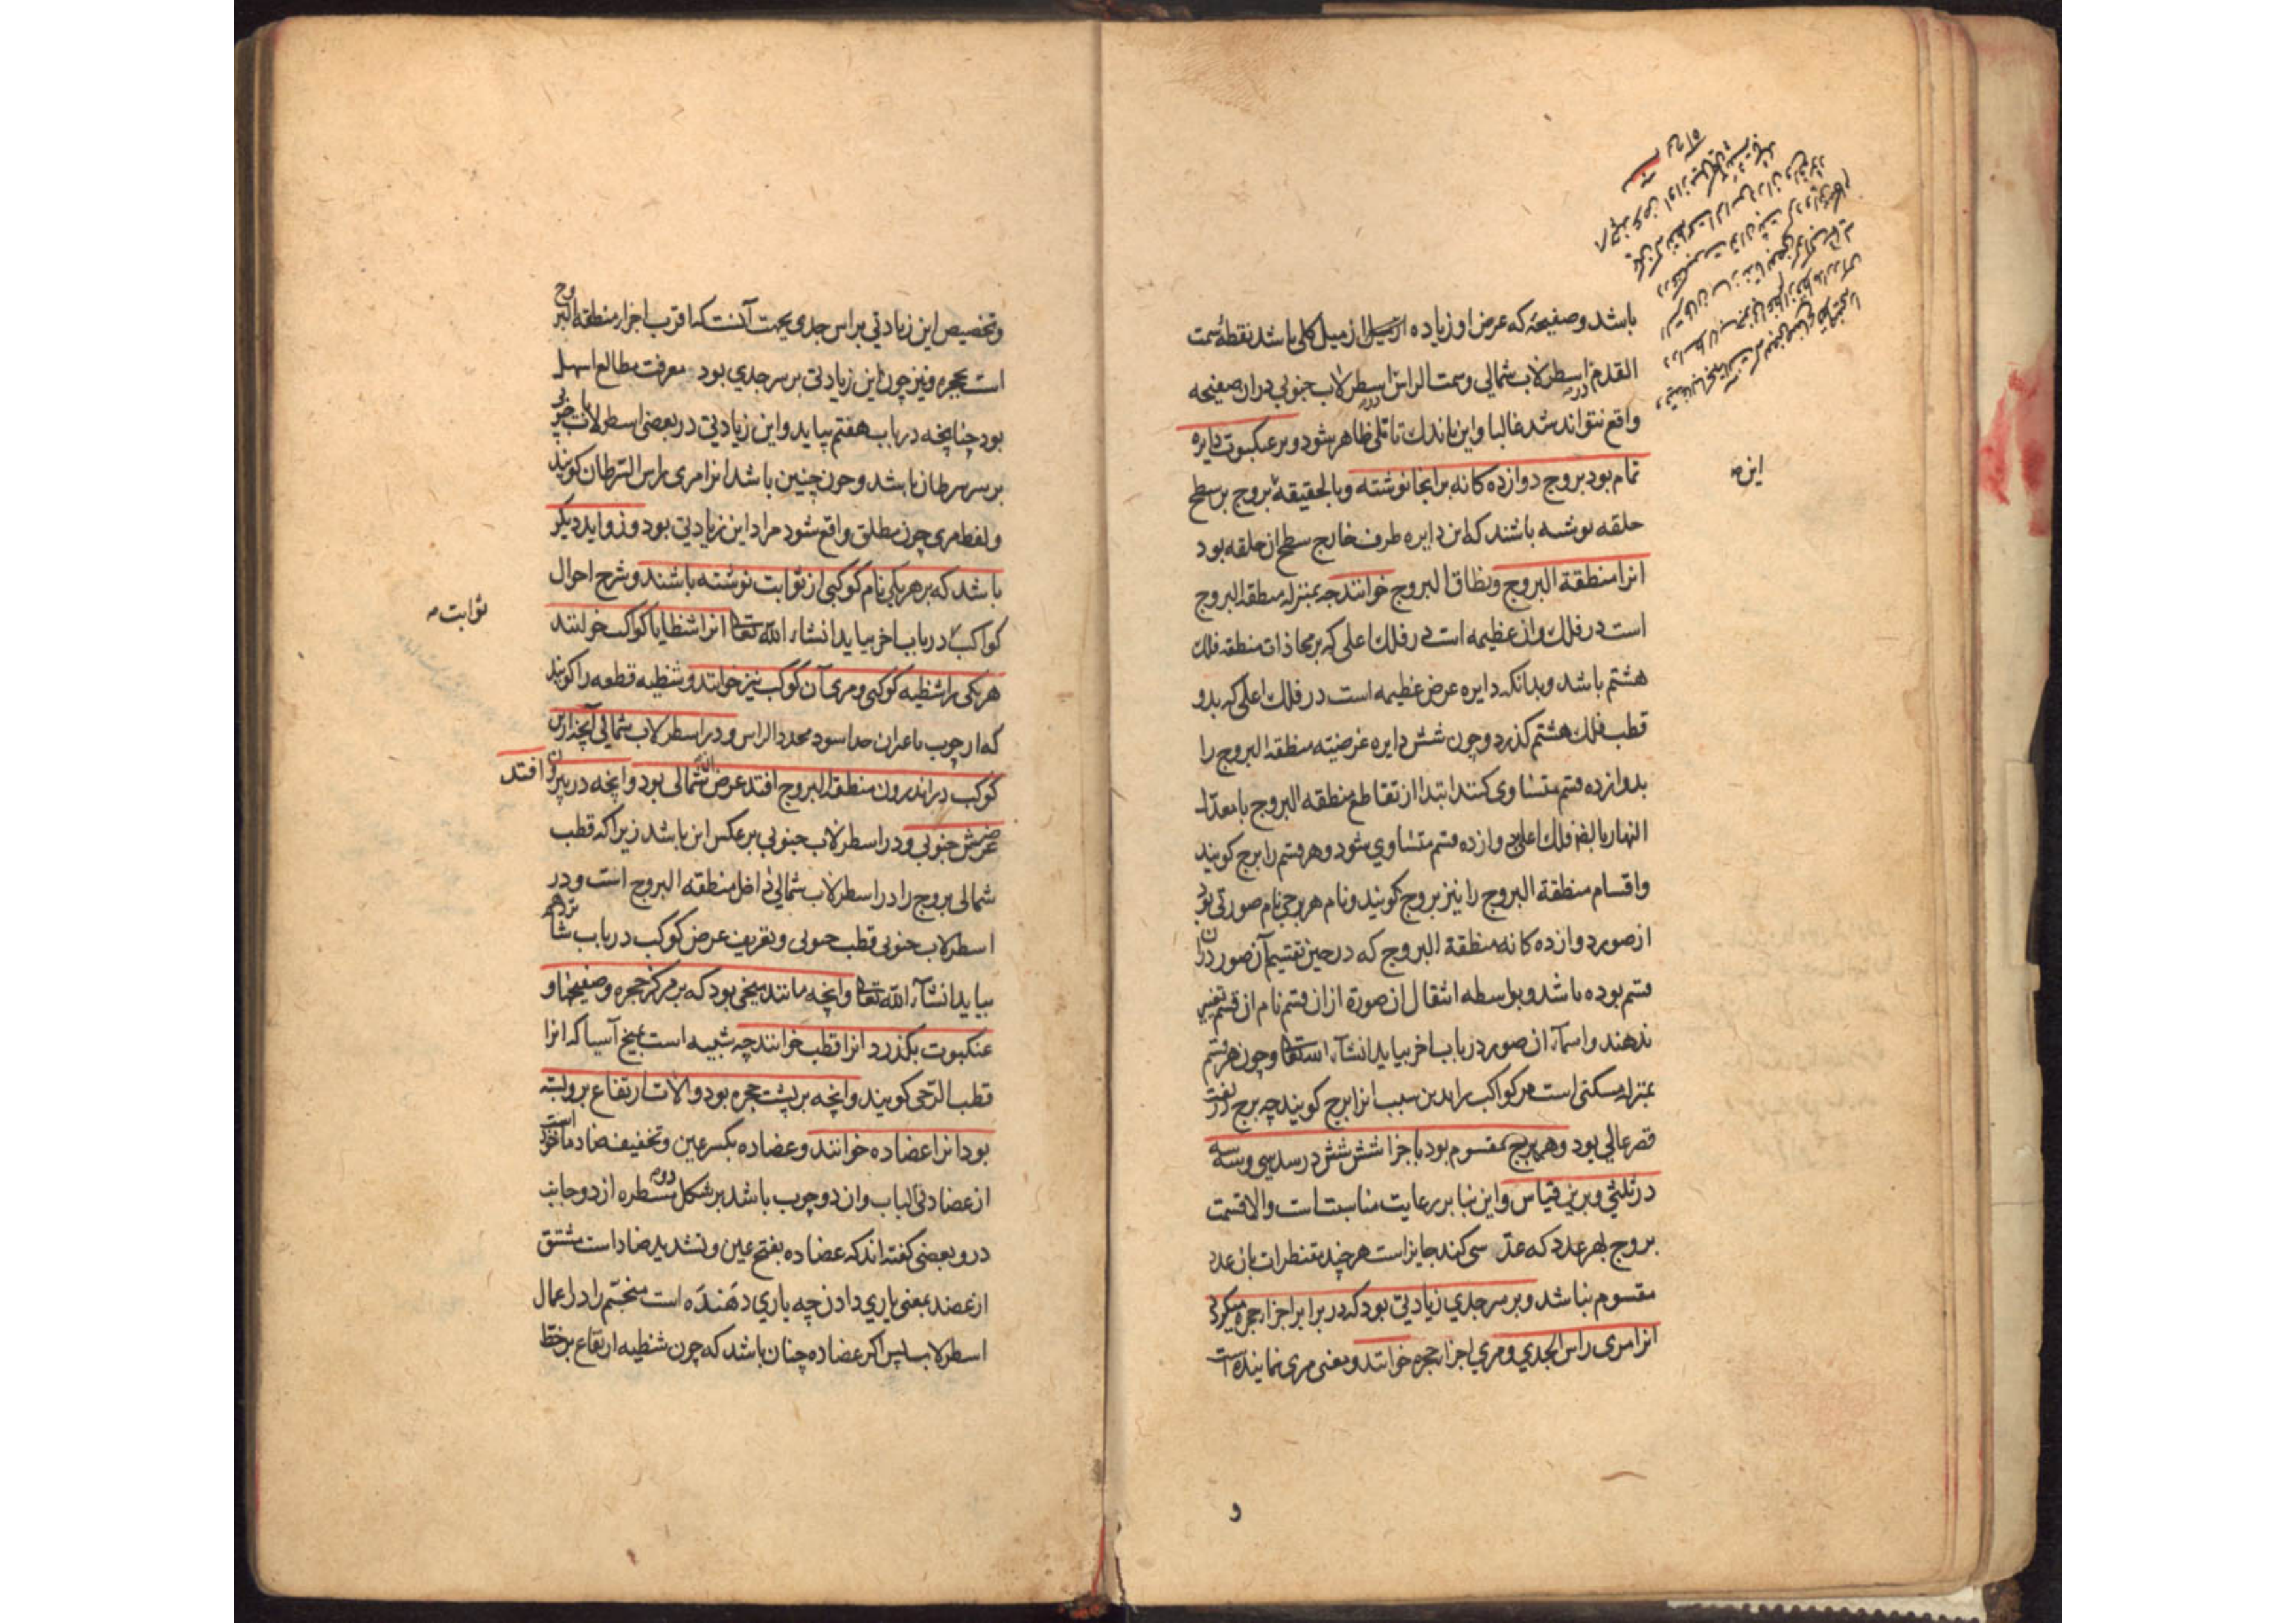 باشد و صفیحهٔ که عرض او زیاده از میل کلی باشد نقطهٔ سمت
القدم در اسطرلاب شمالی و سمت الراس در اسطرلاب جنوبی دران صفیحه
واقع نتواند شد غالبا و این باندك تاملی ظاهر شود و بر عنکبوت دایره
تمام بود بروج دوازده کانه برانجا نوشته و بالحقیقه بروج بر سطح
حلقه نوشته باشند که این دایره طرف خارج سطح ان حلقه بود
انرا منطقة البروج و نطاق البروج خوانند چه بمنزله منطقه البروج
است در فلك و ان عظیمه است در فلك اعلی که بر محاذات منطقه فلك
هشتم باشد و بدانکه دایره عرض عظیمه است در فلك اعلی که بدو
قطب فلك هشتم کذرد و چون شش دایره عرضیه منطقه البروج را
بدوازده قسم متساوی کنند ابتدا از تقاطع منطقه البروج با معدل
النهار بالضر فلك اعلی بدوازده قسم متساوي شود و هر قسم را برج کویند
و اقسام منطقة البروج را نیز بروج کویند و نام هر برجی نام صورتی بود
از صور دوازده کانه منطقة البروج که در حین تقسیم آن صور دران
قسم بوده باشد و بواسطه انتقال ان صورة ازان قسم نام ان قسم تغییر
ندهند و اسمآء ان صور در باب اخر بیاید انشآء الله تعا و چون هر قسم
بمنزله مسکنی است مر کواکب را بدین سبب انرا برج کویند چه برج در لغت
قصر عالي بود و هر برج مقسوم بود باجزا شش شش در سدسی و سه سه
در ثلثی و برین قیاس و این بنا بر رعایت مناسبت است و الا قسمت
بروج بهر عدد که عدّ سی کند جایز است هر چند مقنطرات بان عدد
مقسوم نباشد و بر سر جدي زیادتی بود که در برابر اجزاء حجره میکردد
انرا مری راس الجدي و مري اجزاء حجره خوانند و معنی مری نماینده است
این
و
و تخصیص این زیادتي براس جدي بجهت آنست که اقرب اجزاء منطقه البروج
است بحجره و نیز چون این زیادتی بر سر جدي بود معرفت مطالع اسهل
بود چنانچه در باب هفتم بیاید و این زیادتی در بعضی اسطرلاب جنوبی
بر سر سرطان باشد و چون چنین باشد انرا مری راس السرطان کویند
و لفظ مری چون مطلق واقع شود مراد این زیادتی بود و زواید دیکر
باشد که بر هر یکی نام کوکبی از ثوابت نوشته باشند و شرح احوال
کواکب در باب اخر بیاید انشاء الله تعا انرا شظایا کواکب خوانند
هر یکی را شظیه کوکبی و مری آن کوکب نیز خوانند و شظیه قطعه را کویند
که از چوب یا عیران جدا شود محدد الراس و در اسطرلاب شمالی آنچه ازین
کوکب در اندرون منطقة البروج افتد عرض شمالی بود و انچه در بیرون افتد
عرضش جنوبي و در اسطرلاب جنوبی برعکس این باشد زیرا که قطب
شمالی بروج را در اسطرلاب شمالی داخل منطقه البروج است و در
اسطرلاب جنوبی قطب جنوبی و تعریف عرض کوکب در باب شانزدهم
بیاید انشآء الله تعا و انچه مانند میخی بود که بر مرکز حجره و صفیحها و
عنکبوت بکذرد انرا قطب خوانند چه شبیه است بمیخ آسیا که انرا
قطب الرّحی کویند و انچه بر پشت حجره بود و الات ارتفاع بروبسته
بود انرا عضاده خوانند و عضاده بکسر عین و تخفیف ضاد ماخوذ است
از عضادتی الباب و ان دو چوب باشد بر شکل دو مسطره از دو جانب
در و بعضی کفته اند که عضاده بفتح عین و تشدید ضاد است مشتق
از عضد بمعنی یاري دادن چه یاري دهنده است منجّم را در اعمال
اسطرلاب پس اکر عضاده چنان باشد که چون شظیه ارتفاع بر خط
ثوابت